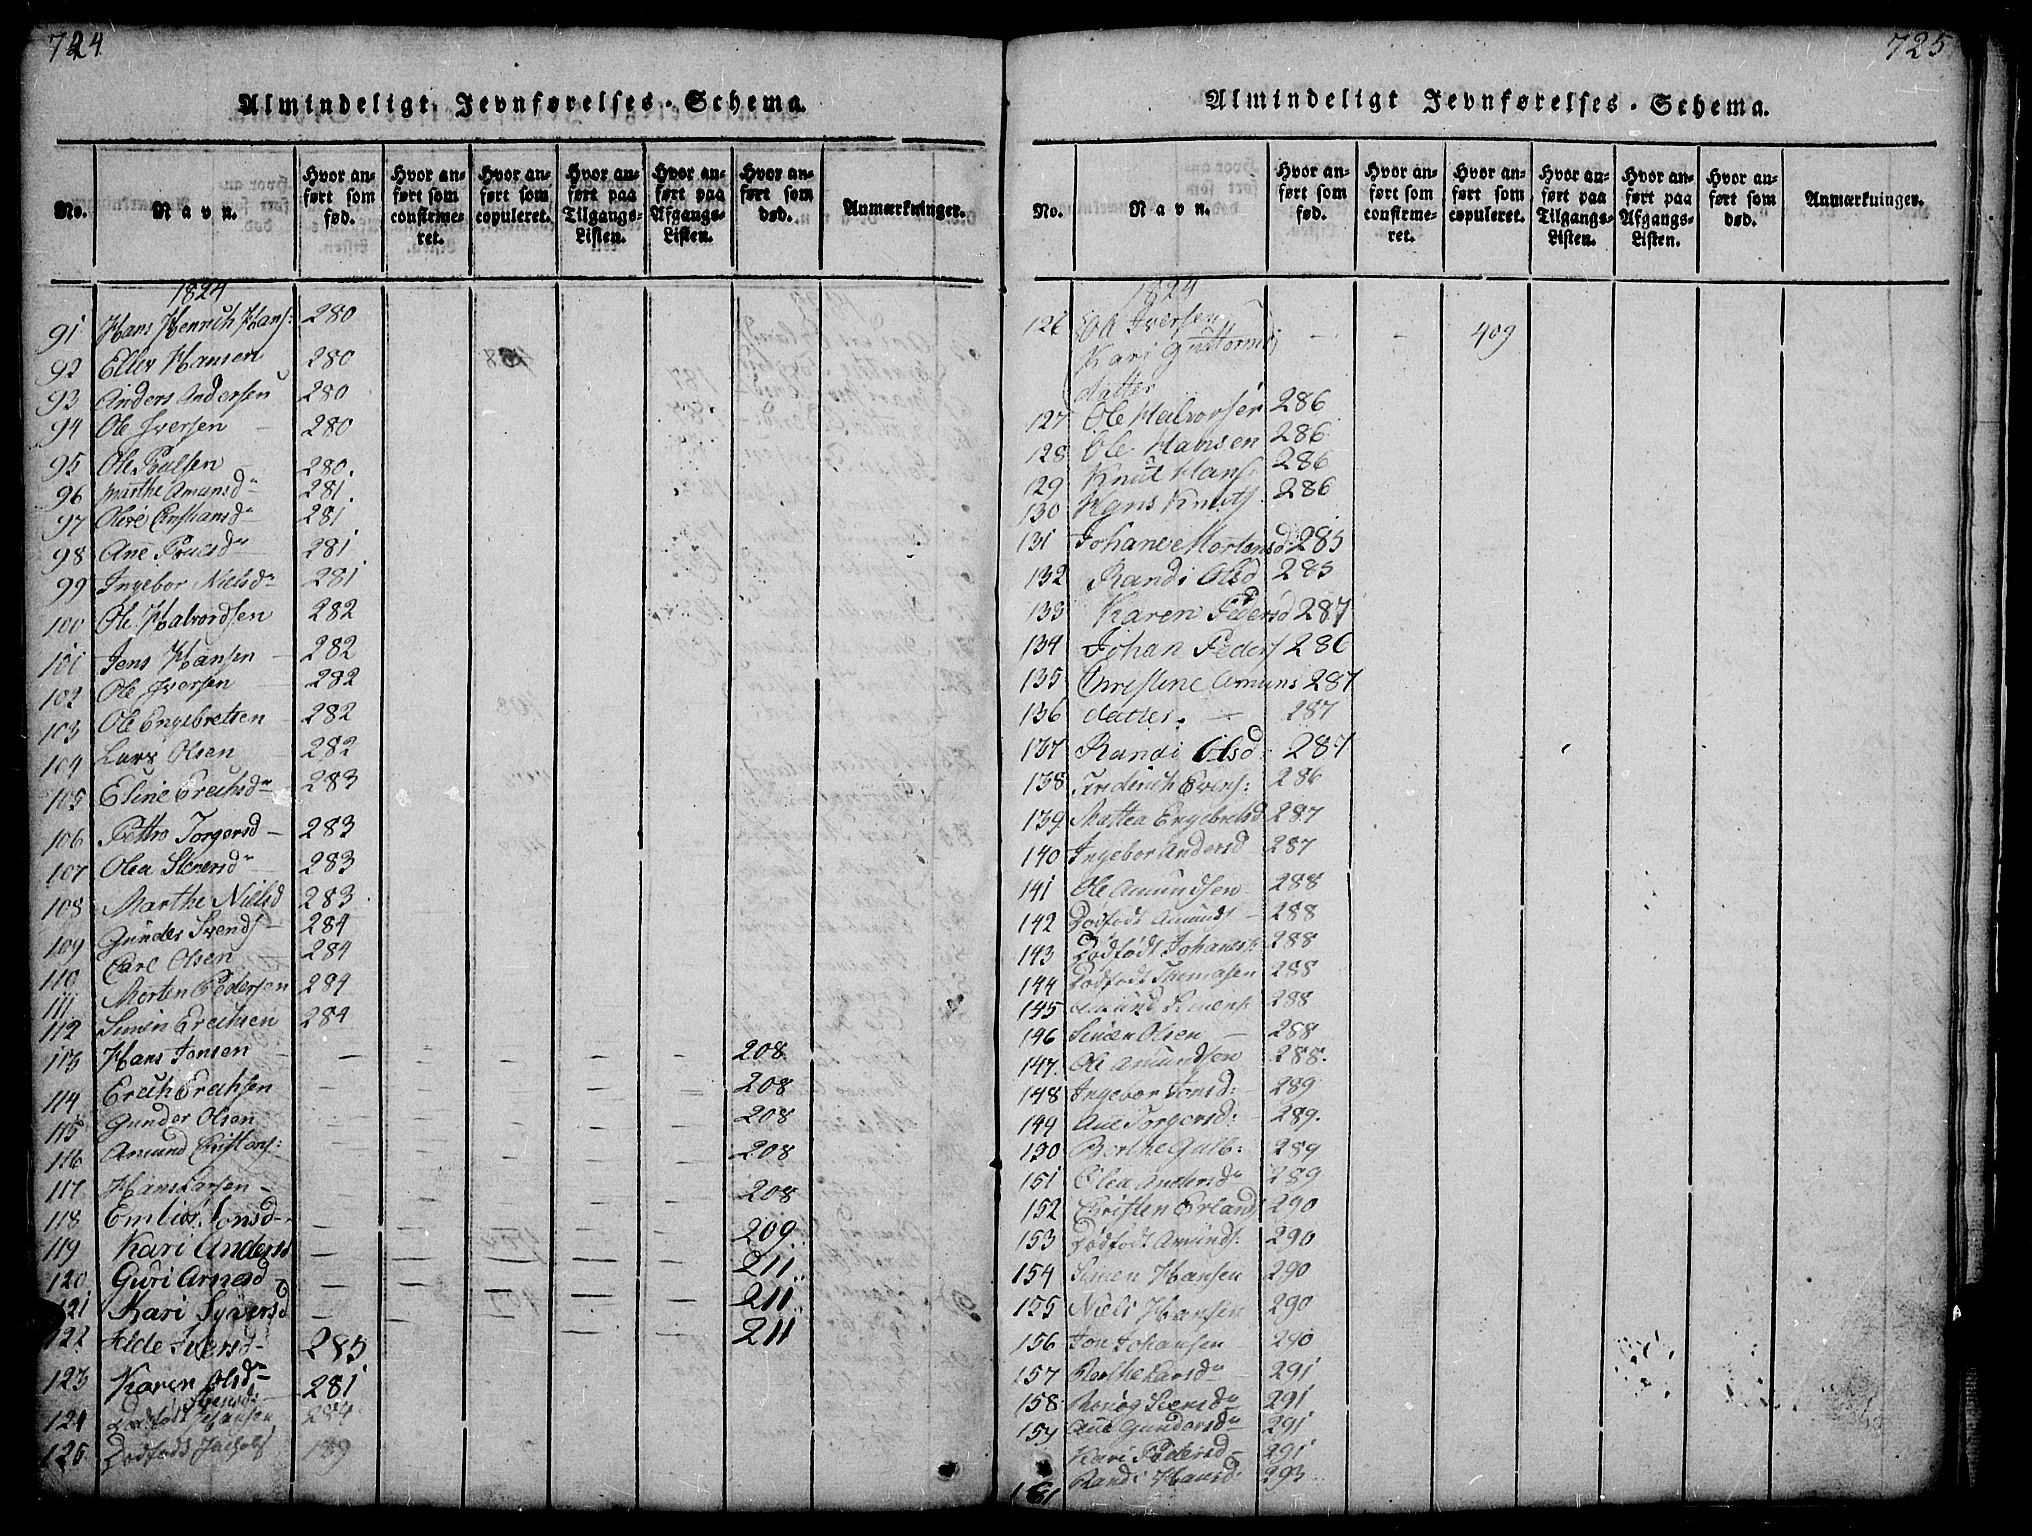 724
Almindeligt Jevnførelses-Schema.
No. Navn. Hvor anført som fød. Hvor anført som confirmeret. Hvor anført som copuleret. Hvor anført paa Tilgangs-Listen. Hvor anført paa Afgangs-Listen. Hvor anført som død. Anmærkninger.
1824
91 Hans Henrich Hans: 280
92 Eller Hansen 280
93 Anders Andersen 280
94 Ole Iversen 280
95 Ole Palsen 280.
96 Marthe Amunsdr 281.
97 281
98 Ane 281
99 Ingebor Nielsdr 281
100 Ole Halvordsen 282
101 Jens Hansen 282
102 Ole Iversen 282
103 Ole Engebretsen 282
104 Lars Olsen 282
105 Eline Erichsdr 283
106 Torgersd 283
107 Olea Stenersdr 283
108 Marthe Nielsd 283
109 Gunder Svends 284
110 Carl Olsen 284
111 Morten Pedersen 284
112 Simen Erichsen 284
113 Hans Jensen 208
114 Erich Erichsen 208
115 Gunder Olsen 208
116 Amund 208
117 Hans Larsen 208
118 209.
119 Kari Anders 211
120 Guri Arnesd 211
121 Kari Syversd 211
122 Iversd 285
123 Karen Olsdr 281
124 Dødfødt 284
125 Dødfødt 199
725
Almindeligt Jevnførelses-Schema.
No. Navn. Hvor anført som fød. Hvor anført som confirmeret. Hvor anført som copuleret. Hvor anført paa Tilgangs-Listen. Hvor anført paa Afgangs-Listen. Hvor anført som død. Anmærkninger.
1824
126 Ole Iversen
Kari Guttorms 409
datter
127 Ole Halvorsen 286
128 Ole Hansen 286
129 Knut Hans 286
130 Hans Knuts 286
131 Johane Mortensd 285
132 Randi Olsd 285
133 Karen Pedersd 287
134 Johan Peders 286
135 Christine Amuns 287
136 datter. 287
137 Randi Olsd 287
138 Frederich Evens: 286
139 Mattea Engebretsd 287
140 Ingebor Andersd 287
141 Ole Amundsen 288
142 Dødfødt Amunds 288
143 Dødfødt Johanes: 288
144 Dødfødt Thomasen 288
145 Amund Simens: 288
146 Simen Olsen 288
147. Ole Amundsen 288.
148 Ingebor Jonsd: 289
149 Ane Torgersd: 289.
150 Berthe Gulb: 289
151 Olea Andersdr 289
152 Christen Erlands 290
153 Dødfødt Amunds: 290
154 Simen Hansen 290
155 Niels Hansen 290
156 Jon Johansen 290
157 Berthe Larsdr 291
158 291
159 Ane Gundersdr 291
Kari Pedersd 291
161 Randi Hansd: 293